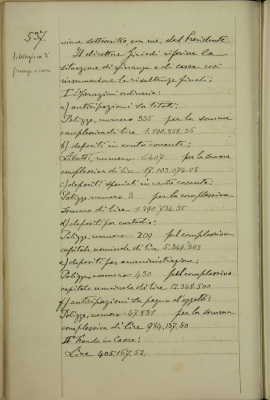 537.
Situazione di
finanza e cassa
viene sottoscritto con me, dal Presidente.
Il direttore quindi riferisce la
situazione di finanza e di cassa, così
riassumendone le risultanze finali:
I° Operazioni ordinarie:
a) anticipazioni su titoli:
Polizze, numero 355 per la somma
complessiva di lire 1.190.858.35
b) depositi in conto corrente:
Libretti, numero 5407 per la somma
complessiva di lire 17.103.074.08
c) depositi speciali in conto corrente:
Polizze numero 3 per la complessiva
somma di lire 1.790.734.35
d) depositi per custodia:
Polizze, numero 209 pel complessivo
capitale nominale di lire 5.349.303
e) depositi per amministrazione:
Polizze, numero 430 pel complessivo
capitale nominale di lire 12.348.500
f) anticipazioni su pegno d'oggetti:
Polizze, numero 47.831 per la somma
complessiva di lire 984.157.50
II° Fondo in Cassa:
Lire 405.157.52.